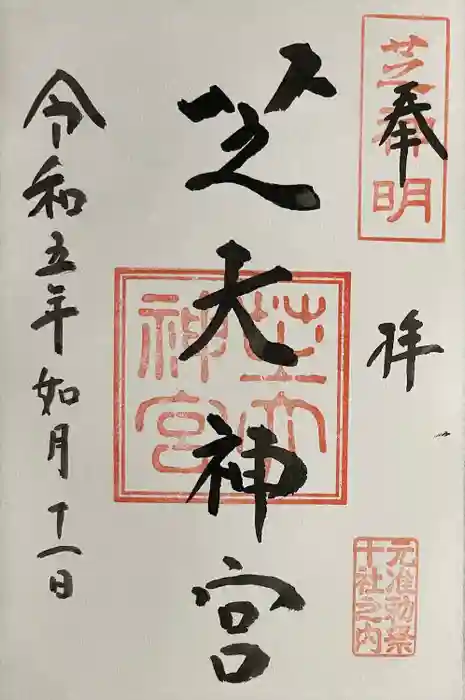 奉
拝
芝神明
元准勅祭
十社之内
芝大神宮
芝大
神宮
令和五年如月十一日